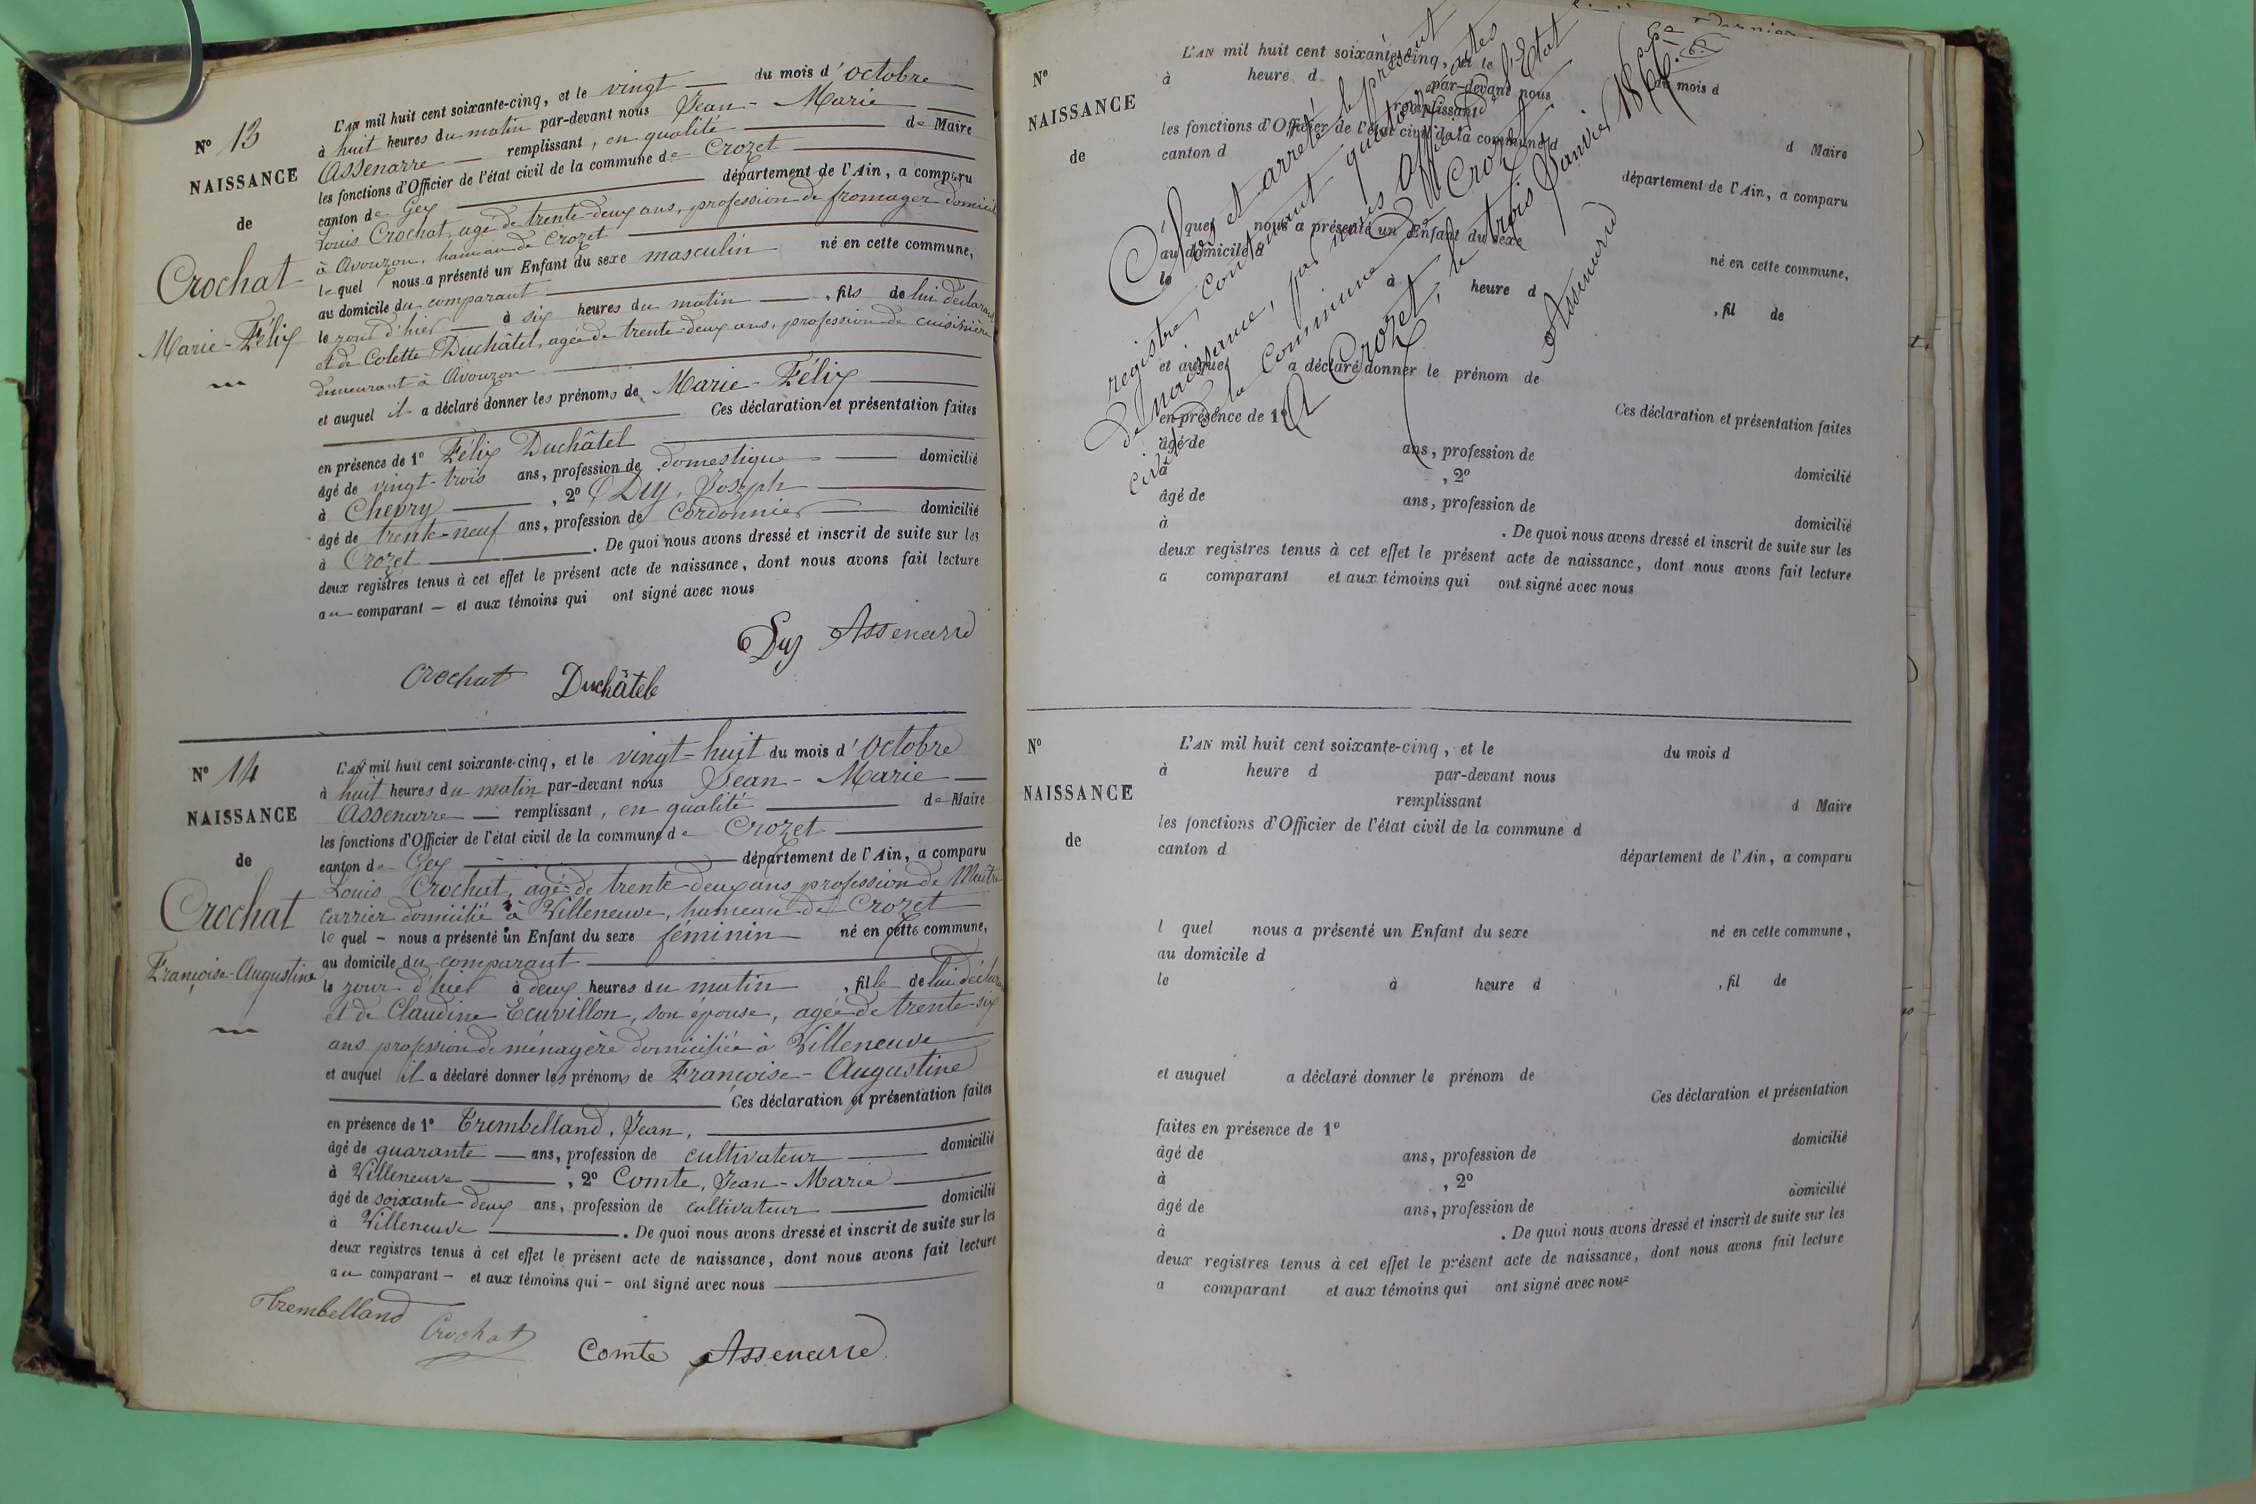 N° 13
NAISSANCE
de
Crochat
Marie-Félix
L'AN mil huit cent soixante-cinq, et le vingt du mois d'octobre
à huit heures du matin par-devant nous Jean-Marie
Assenarre remplissant, en qualité de Maire
les fonctions d'Officier de l'état civil de la commune de Crozet
canton de Gex département de l'Ain, a comparu
Louis Crochat, agé de trente-deux ans, profession de fromager domicilié
à Avouzon, hameau de Crozet
lequel nous a présenté un Enfant du sexe masculin né en cette commune,
au domicile du comparant
le jour d'hier à six heures du matin, fils de lui déclarant
et de Colette Duchâtel, agée de trente-deux ans, profession de cuisinière
demeurant à Avouzon
et auquel il a déclaré donner les prénoms de Marie-Félix
Ces déclaration et présentation faites
en présence de 1° Félix Duchâtel
âgé de vingt-trois ans, profession de domestique domicilié
à Chevry, 2° Duy, Joseph
âgé de trente-neuf ans, profession de Cordonnier domicilié
à Crozet. De quoi nous avons dressé et inscrit de suite sur les
deux registres tenus à cet effet le présent acte de naissance, dont nous avons fait lecture
au comparant – et aux témoins qui ont signé avec nous
Duy Assenarre
Crochat Duchâtel
N° 14
NAISSANCE
de
Crochat
Françoise-Augustine
L'AN mil huit cent soixante-cinq, et le vingt-huit du mois d'octobre
à huit heures du matin par-devant nous Jean-Marie
Assenarre remplissant, en qualité de Maire
les fonctions d'Officier de l'état civil de la commune de Crozet
canton de Gex département de l'Ain, a comparu
Louis Crochat, agé de trente-deux ans profession de Maître
carrier domicilié à Villeneuve, hameau de Crozet
lequel – nous a présenté un Enfant du sexe féminin né en cette commune,
au domicile du comparant
le jour d'hier à deux heures du matin, fille de lui déclarant
et de Claudine Ecuvillon, son épouse, agée de trente-six
ans profession de ménagère domiciliée à Villeneuve
et auquel il a déclaré donner les prénoms de Françoise-Augustine
Ces déclaration et présentation faites
en présence de 1° Trembelland, Jean,
âgé de quarante ans, profession de cultivateur domicilié
à Villeneuve, 2° Comte, Jean-Marie
âgé de soixante-deux ans, profession de cultivateur domicilié
à Villeneuve. De quoi nous avons dressé et inscrit de suite sur les
deux registres tenus à cet effet le présent acte de naissance, dont nous avons fait lecture
au comparant – et aux témoins qui – ont signé avec nous
Trembelland
Crochat
Comte Assenarre
N°
NAISSANCE
de
L'AN mil huit cent soixante-cinq, et le du mois d
à heure d par-devant nous
remplissant d Maire
les fonctions d'Officier de l'état civil de la commune d
canton d département de l'Ain, a comparu
l quel nous a présenté un Enfant du sexe né en cette commune,
au domicile d
le à heure d , fil de
et auquel a déclaré donner le prénom de
Ces déclaration et présentation faites
en présence de 1°
âgé de ans, profession de domicilié
à , 2°
âgé de ans, profession de domicilié
à . De quoi nous avons dressé et inscrit de suite sur les
deux registres tenus à cet effet le présent acte de naissance, dont nous avons fait lecture
a comparant et aux témoins qui ont signé avec nous
Clos et arrêté le présent
registre, contenant quatorze actes
de naissance, par nous Officier de l'Etat
civil de la Commune de Crozet
A Crozet, le trois Janvier 1866.
Assenarre
N°
NAISSANCE
de
L'AN mil huit cent soixante-cinq, et le du mois d
à heure d par-devant nous
remplissant d Maire
les fonctions d'Officier de l'état civil de la commune d
canton d département de l'Ain, a comparu
l quel nous a présenté un Enfant du sexe né en cette commune,
au domicile d
le à heure d , fil de
et auquel a déclaré donner le prénom de
Ces déclaration et présentation
faites en présence de 1°
âgé de ans, profession de domicilié
à , 2°
âgé de ans, profession de domicilié
à . De quoi nous avons dressé et inscrit de suite sur les
deux registres tenus à cet effet le présent acte de naissance, dont nous avons fait lecture
a comparant et aux témoins qui ont signé avec nous